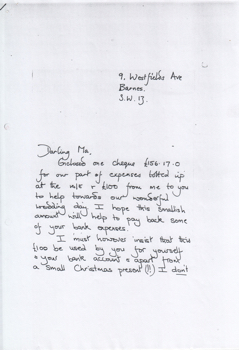 9, Westfields Ave
Barnes.
S.W. 13.
Darling Ma,
Enclosed one cheque £156.17.0
for our part of expenses totted up
at the m/s + £100 from me to you
to help towards our wonderful
wedding day. I hope this smallish
amount will help to pay back some
of your bank expenses.
I must however insist that this
£100 be used by you for yourself
+ your bank account + apart from
a small Christmas present (!!) I don't